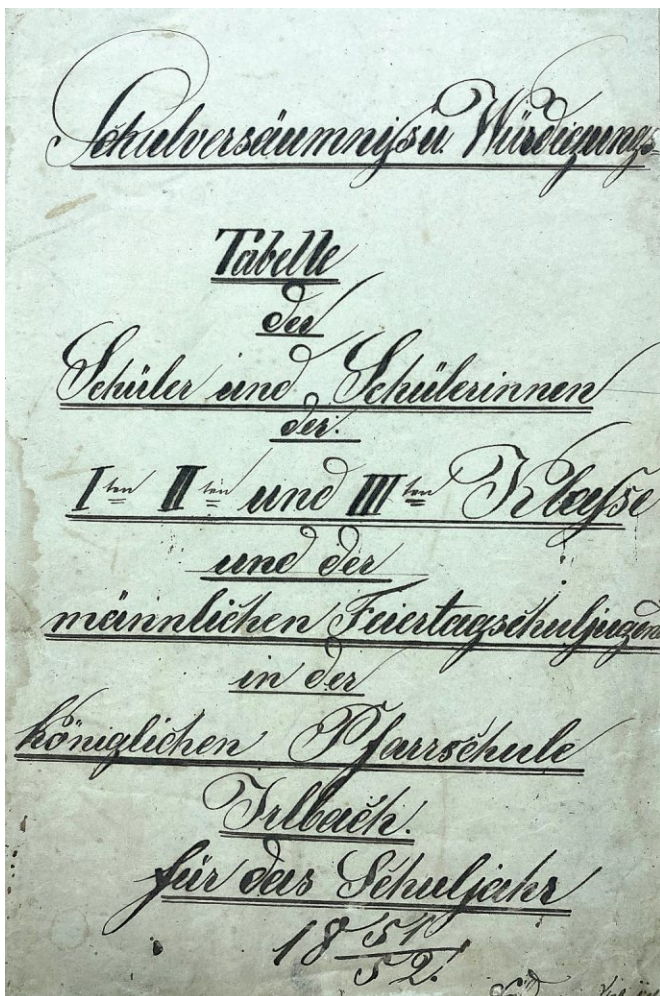 Schulversäumniß u. Würdigungs-
Tabelle
der
Schüler und Schülerinnen
der
Iten IIten und IIIten Klaße
und der
männlichen Feiertagschuljugend
in der
königlichen Pfarrschule
Irlbach.
für das Schuljahr
18 51/52.